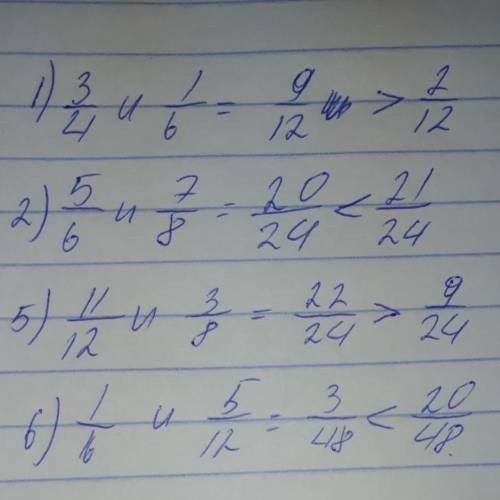 1) 3/4 и 1/6 = 9/12 > 2/12
2) 5/6 и 7/8 = 20/24 < 21/24
5) 11/12 и 3/8 = 22/24 > 9/24
6) 1/6 и 5/12 = 3/48 < 20/48.